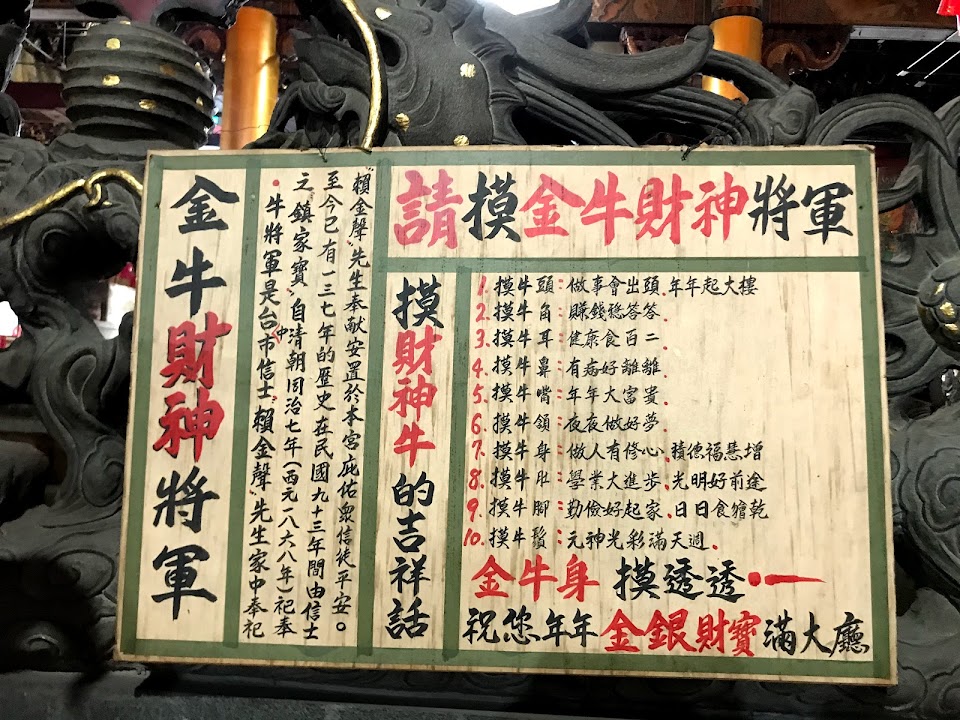 金牛財神將軍
•牛將軍是台中市信士"賴金聲"先生家中奉祀
之"鎮家寶"自清朝同治七年(西元一八六八年)祀奉
至今已有一三七年的歷史在民國九十三年間由信士
"賴金聲"先生奉献安置於本宮庇佑眾信徒平安。
請摸金牛財神將軍
摸財神牛的吉祥話
1.摸牛頭:做事會出頭.年年起大樓
2.摸牛角:賺錢穩答答.
3.摸牛耳:健康食百二.
4.摸牛鼻:有病好離離.
5.摸牛嘴:年年大富貴.
6.摸牛領:夜夜做好夢.
7.摸牛身:做人有修心.積德福慧增
8.摸牛肚:學業大進步.光明好前途
9.摸牛腳:勤儉好起家.日日食乾
10.摸牛鬚:元神光彩滿天週.
金牛身 摸透透
祝您年年金銀財寶滿大廳